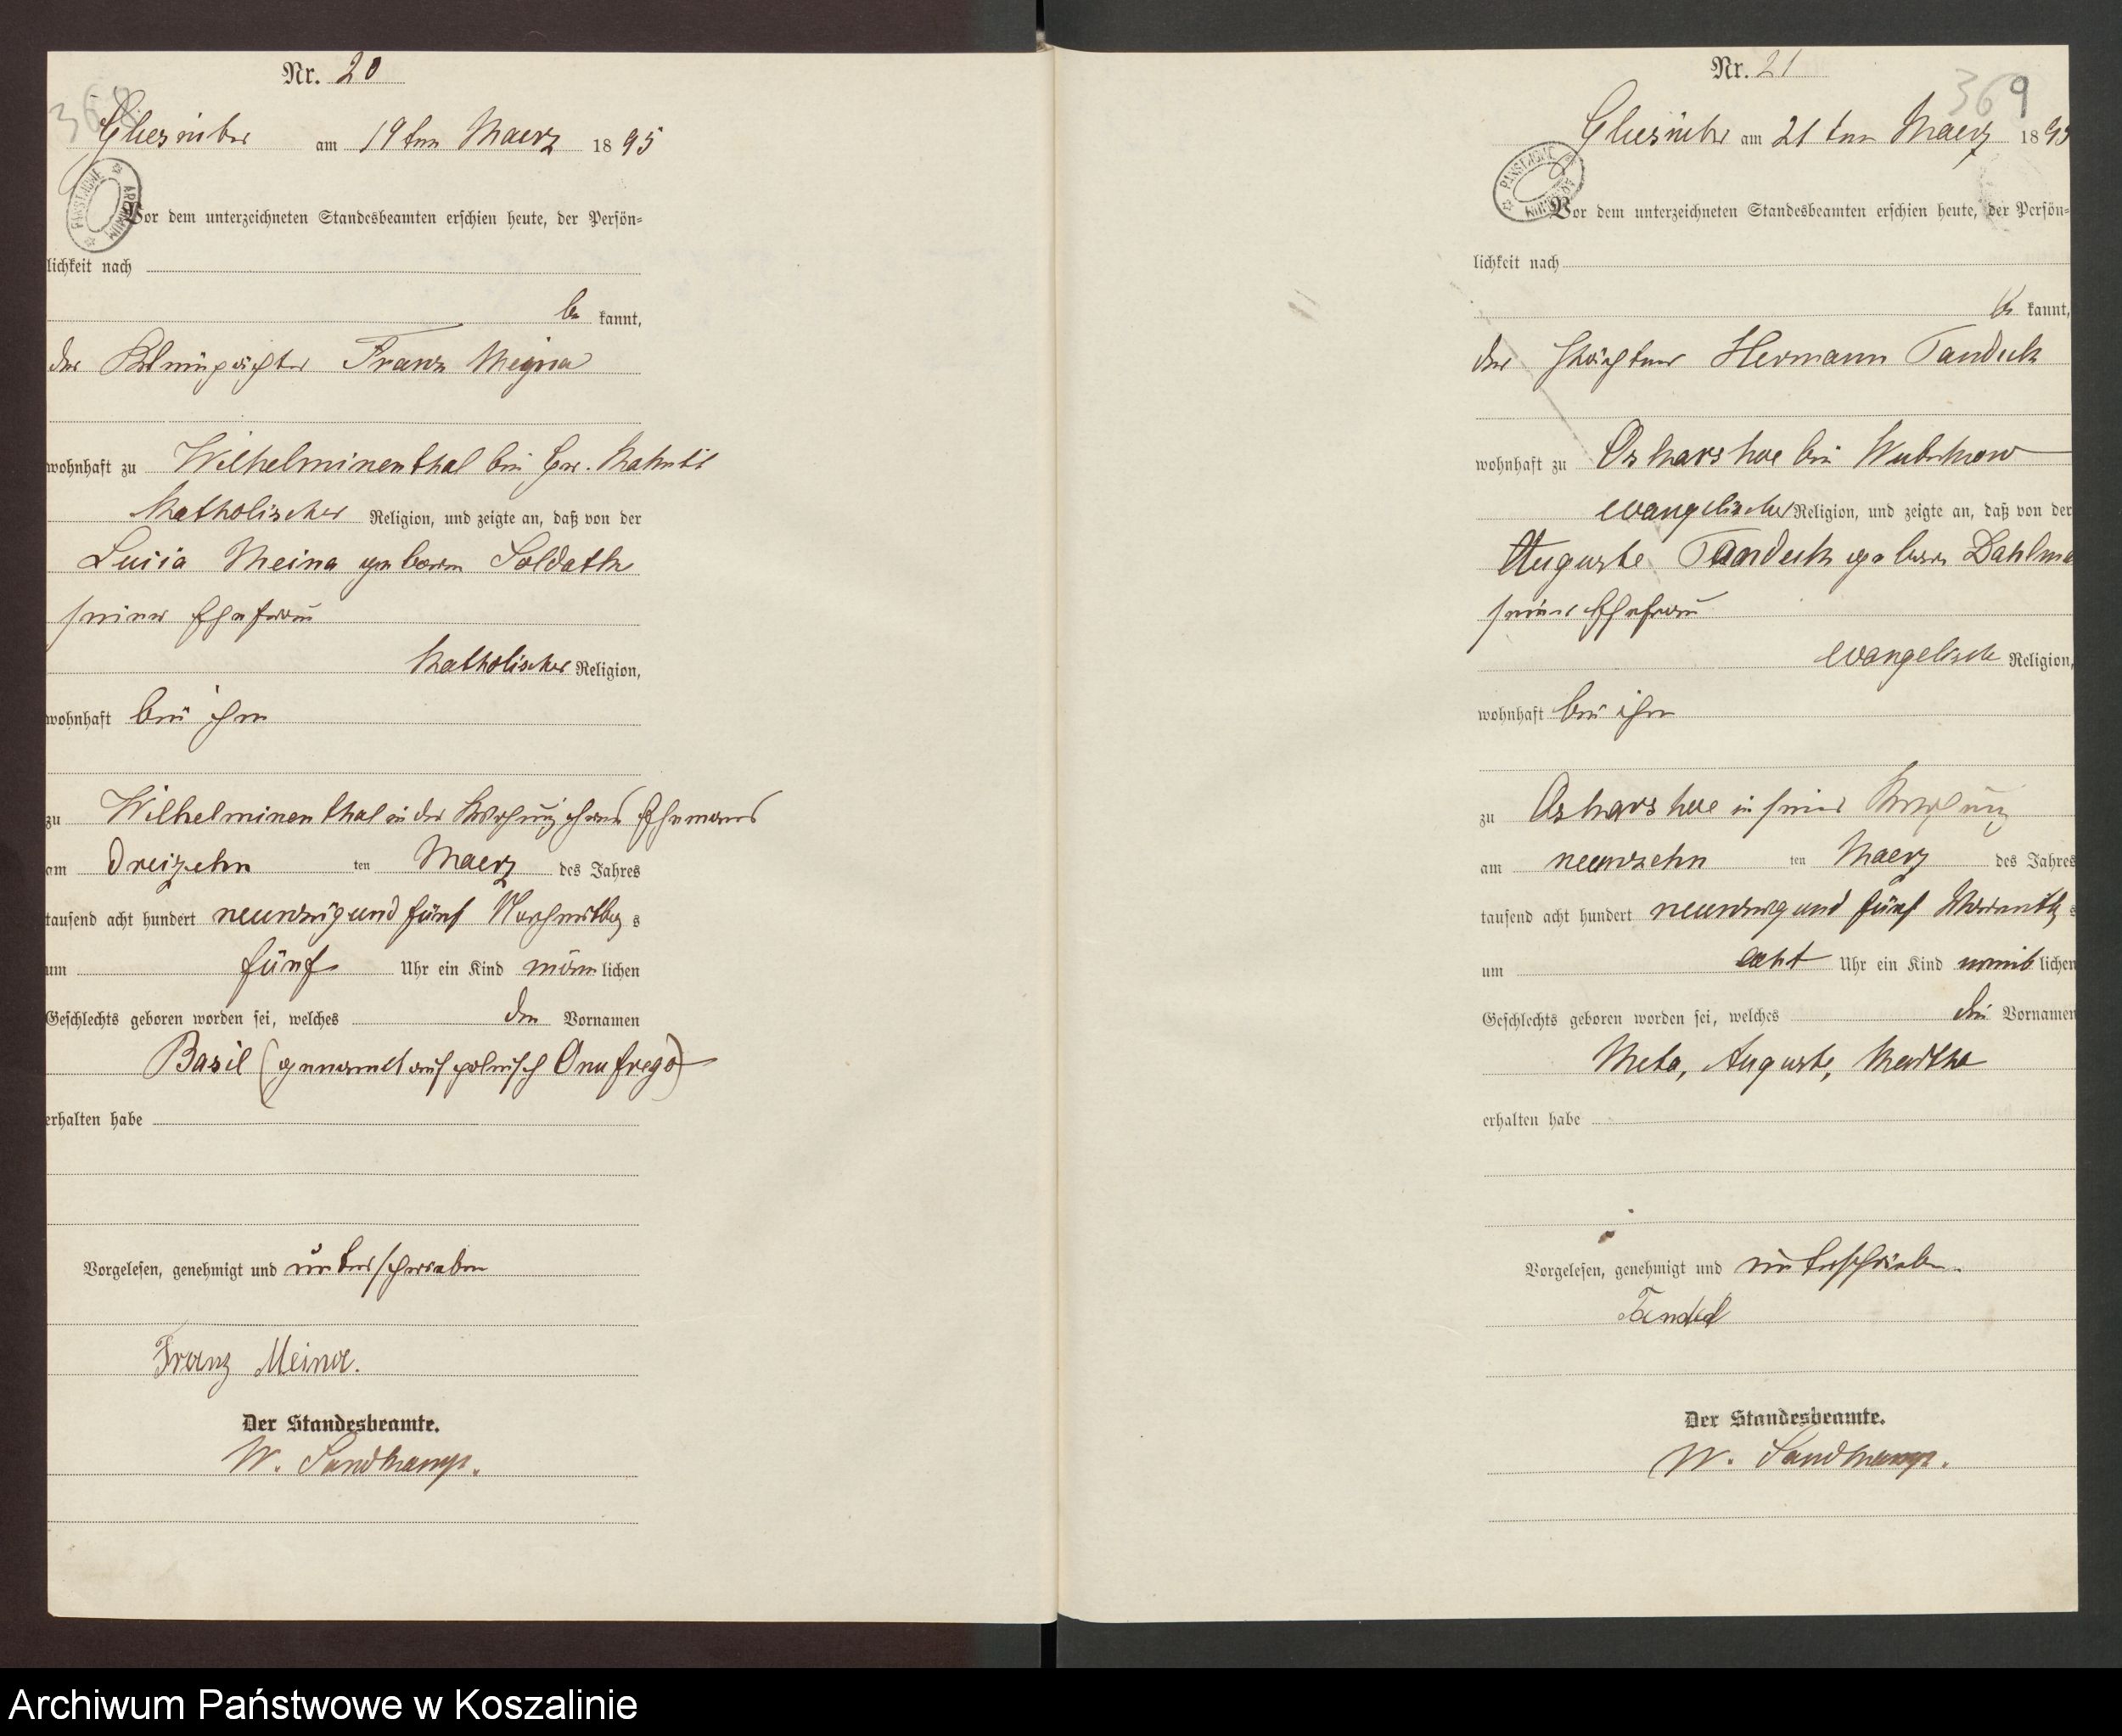 Nr. 20
368
Gliesnitz am 19ten Maerz 1895
PAŃSTWOWE ARCHIWUM
Vor dem unterzeichneten Standesbeamten erschien heute, der Persön-
lichkeit nach
be kannt,
der Franz Meina
wohnhaft zu Wilhelminenthal bei Gr.
Katholischer Religion, und zeigte an, daß von der
Luisa Meina geboren Soldatke
seiner Ehefrau
Katholischer Religion,
wohnhaft bei ihm
zu Wilhelminenthal in der Wohnung ihres Ehemanns
am dreizehn ten Maerz des Jahres
tausend acht hundert neunzig und fünf Nachmittag s
um fünf Uhr ein Kind männlichen
Geschlechts geboren worden sei, welches den Vornamen
Basil (genannt auf polnisch Onufrego)
erhalten habe
Vorgelesen, genehmigt und unterschrieben
Franz Meina.
Der Standesbeamte.
W. Sandkamp.
Nr. 21
369
Gliesnitz am 21ten Maerz 1895
PAŃSTWOWE ARCHIWUM
Vor dem unterzeichneten Standesbeamten erschien heute, der Persön-
lichkeit nach
be kannt,
der Hermann Tandeck
wohnhaft zu Oskarshoe bei Wubekow
evangelischer Religion, und zeigte an, daß von der
Auguste Tandeck geboren Dahlma
seiner Ehefrau
evangelisch Religion,
wohnhaft bei ihm
zu Oskarshoe in seiner Wohnung
am neunzehn ten Maerz des Jahres
tausend acht hundert neunzig und fünf Vormittag s
um acht Uhr ein Kind weiblichen
Geschlechts geboren worden sei, welches die Vornamen
Meta, Auguste, Martha
erhalten habe
Vorgelesen, genehmigt und unterschrieben.
Tandeck
Der Standesbeamte.
W. Sandkamp.
Archiwum Państwowe w Koszalinie